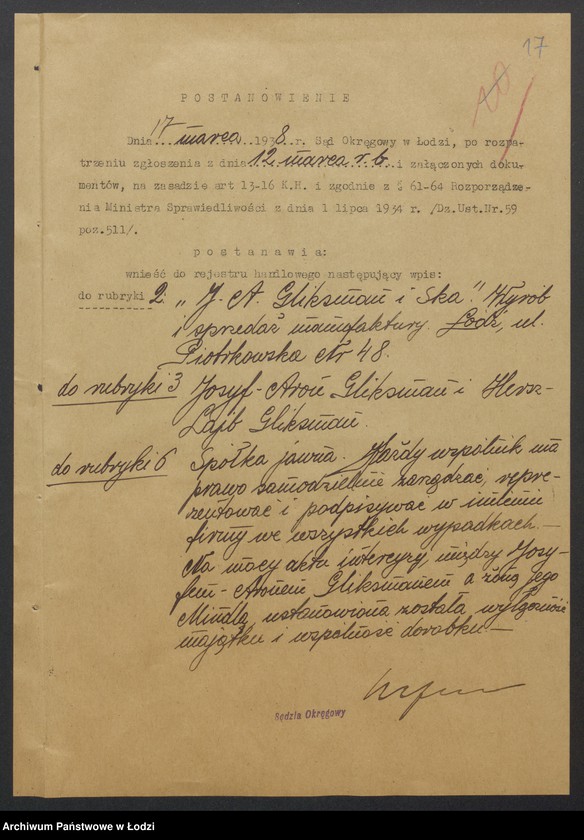 17
20
POSTANOWIENIE
Dnia 17 marca 1938 r. Sąd Okręgowy w Łodzi, po rozpa-
trzeniu zgłoszenia z dnia 12 marca r.b. i załączonych doku-
mentów, na zasadzie art 13-16 K.H. i zgodnie z § 61-64 Rozporządze-
nia Ministra Sprawiedliwości z dnia 1 lipca 1934 r. /Dz.Ust.Nr.59
poz.511/.
postanawia:
wnieść do rejestru handlowego następujący wpis:
do rubryki 2: „J. A. Gliksman i Ska". Wyrób
i sprzedaż manufaktury. Łódź, ul.
Piotrkowska Nr 48.
do rubryki 3 Josyf-Aron Gliksman i Hersz-
Lajb Gliksman.
do rubryki 6 Spółka jawna. Każdy wspólnik ma
prawo samodzielnie zarządzać, repre-
zentować i podpisywać w imieniu
firmy we wszystkich wypadkach.—
Na mocy aktu intercyzy, między Josy-
fem-Aronem Gliksmanem a żoną jego
Mindlą, ustanowiona została wyłączność
majątku i wspólność dorobku.—
Sędzia Okręgowy
Archiwum Państwowe w Łodzi